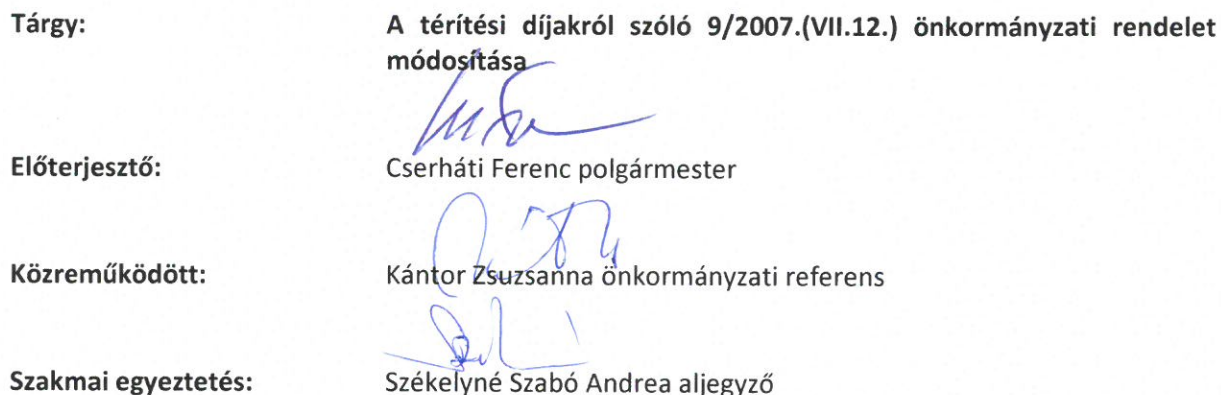 Tárgy: A térítési díjakról szóló 9/2007.(VII.12.) önkormányzati rendelet
módosítása
Előterjesztő: Cserháti Ferenc polgármester
Közreműködött: Kántor Zsuzsanna önkormányzati referens
Szakmai egyeztetés: Székelyné Szabó Andrea aljegyző